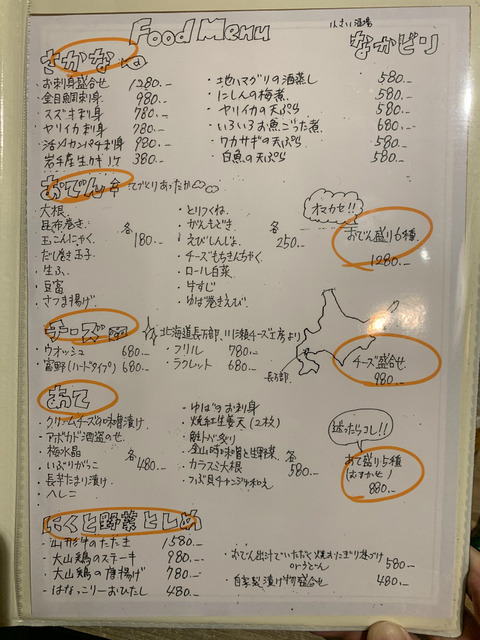 Food Menu
なかビリ
さかな
・お刺身盛合せ 1280.-
・金目鯛刺身 980.-
・スズキ刺身 780.-
・ヤリイカ刺身 780.-
・活〆カンパチ刺身 980.-
・岩手産生カキ 1ケ 380.-
・地ハマグリの酒蒸し 580.-
・にしんの梅煮 580.-
・ヤリイカの天ぷら 580.-
・いろいろお魚ごった煮 680.-
・ワカサギの天ぷら 580.-
・白魚の天ぷら 580.-
おでん
てづくりあったか
・大根
・昆布巻き
・玉こんにゃく
・だし巻き玉子
・生ふ
・豆腐
・さつま揚げ
各180.-
・とりつくね
・がんもどき
・えびしんじょ
・チーズもちきんちゃく
・ロール白菜
・牛すじ
・ゆば巻きえび
各250.-
オマカセ!!
おでん盛り6種
1280.-
チーズ
北海道長万部、川瀬チーズ工房より
・ウオッシュ 680.-
・富野(ハードタイプ) 680.-
・フリル 780.-
・ラクレット 680.-
長万部
チーズ盛合せ
980.-
あて
・クリームチーズの味噌漬け
・アボカド酒盗のせ
・梅水晶
・いぶりがっこ
・長芋たまり漬け
・へしこ
各480.-
・ゆばのお刺身
・焼紅生姜天(2枚)
・鮭トバ炙り
・金山時味噌と生野菜
・カラスミ大根
・つぶ貝チャンジャ和え
各580.-
迷ったらコレ!!
あて盛り5種
(おまかせ)
880.-
にくと野菜としめ
・山形牛のたたき 1580.-
・大山鶏のステーキ 980.-
・大山鶏の唐揚げ 780.-
・はなっこりーおひたし 480.-
・おでん出汁でいただく焼おにぎり茶づけ
orうどん 580.-
・自家製漬け物盛合せ 480.-